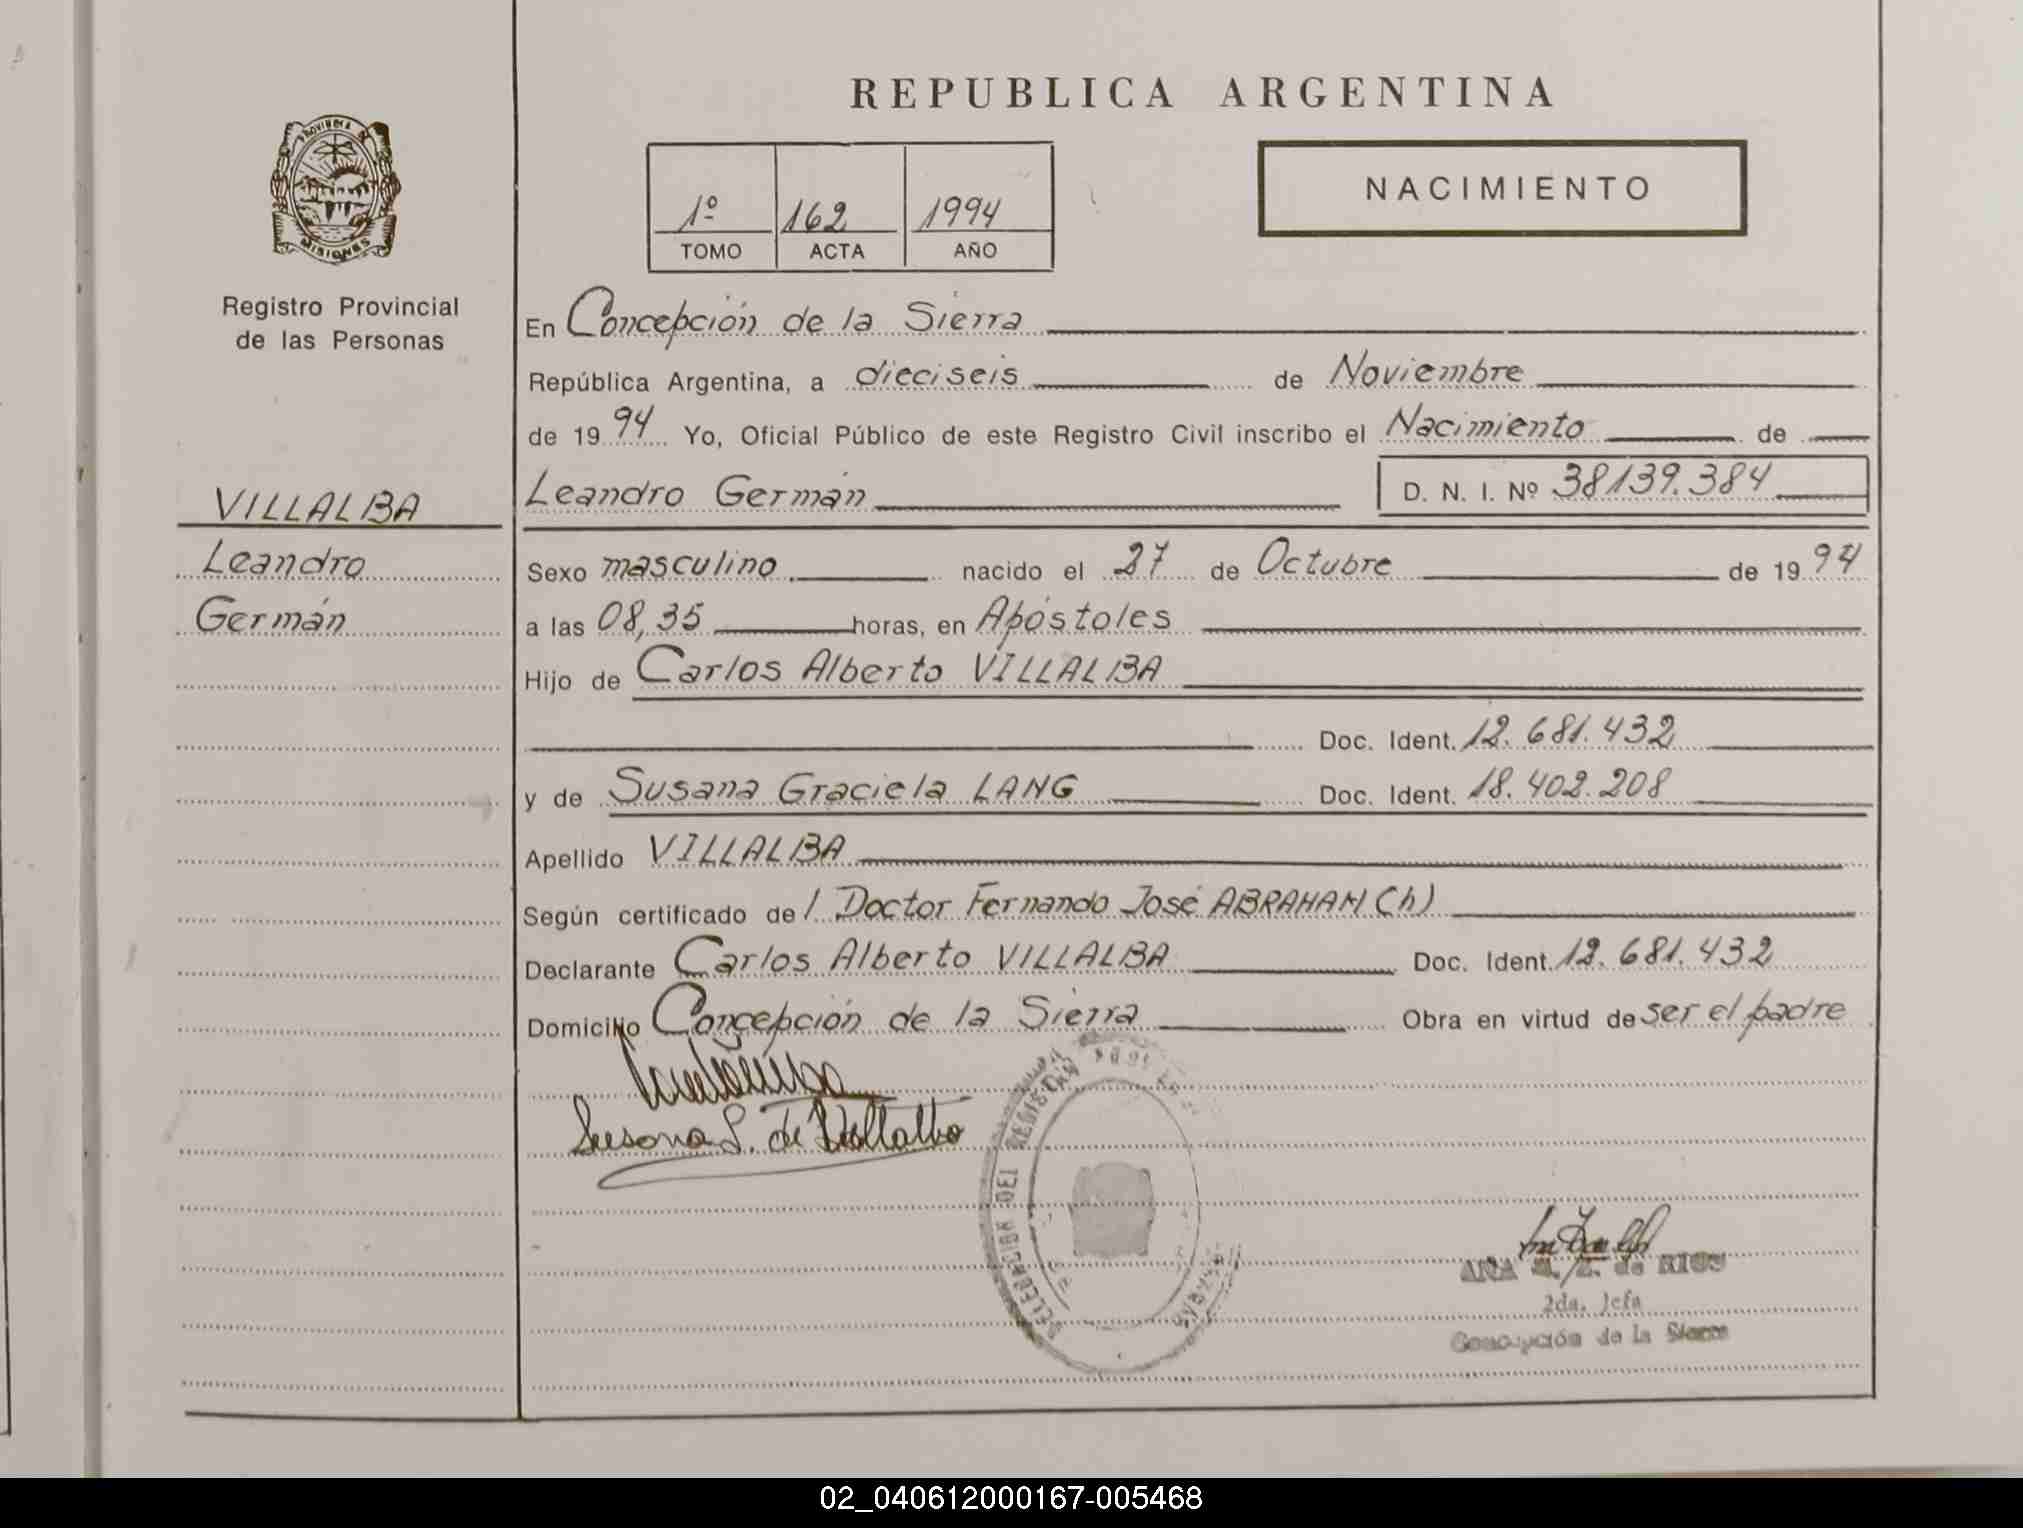 REPUBLICA ARGENTINA
PROVINCIA DE
MISIONES
Registro Provincial
de las Personas
1º 162 1994
TOMO ACTA AÑO
NACIMIENTO
En Concepción de la Sierra
República Argentina, a dieciseis de Noviembre
de 1994 Yo, Oficial Público de este Registro Civil inscribo el Nacimiento de
VILLALBA
Leandro Germán D. N. I. Nº 38139.384
Leandro
Sexo masculino nacido el 27 de Octubre de 1994
Germán
a las 08,35 horas, en Apóstoles
Hijo de Carlos Alberto VILLALBA
Doc. Ident. 12.681.432
y de Susana Graciela LANG Doc. Ident. 18.402.208
Apellido VILLALBA
Según certificado de l Doctor Fernando José ABRAHAM (h)
Declarante Carlos Alberto VILLALBA Doc. Ident. 12.681.432
Domicilio Concepción de la Sierra Obra en virtud de ser el padre
Susana L. de Villalba
DEL REGISTRO
ANA de RIOS
2da. Jefa
Concepción de la Sierra
02_040612000167-005468